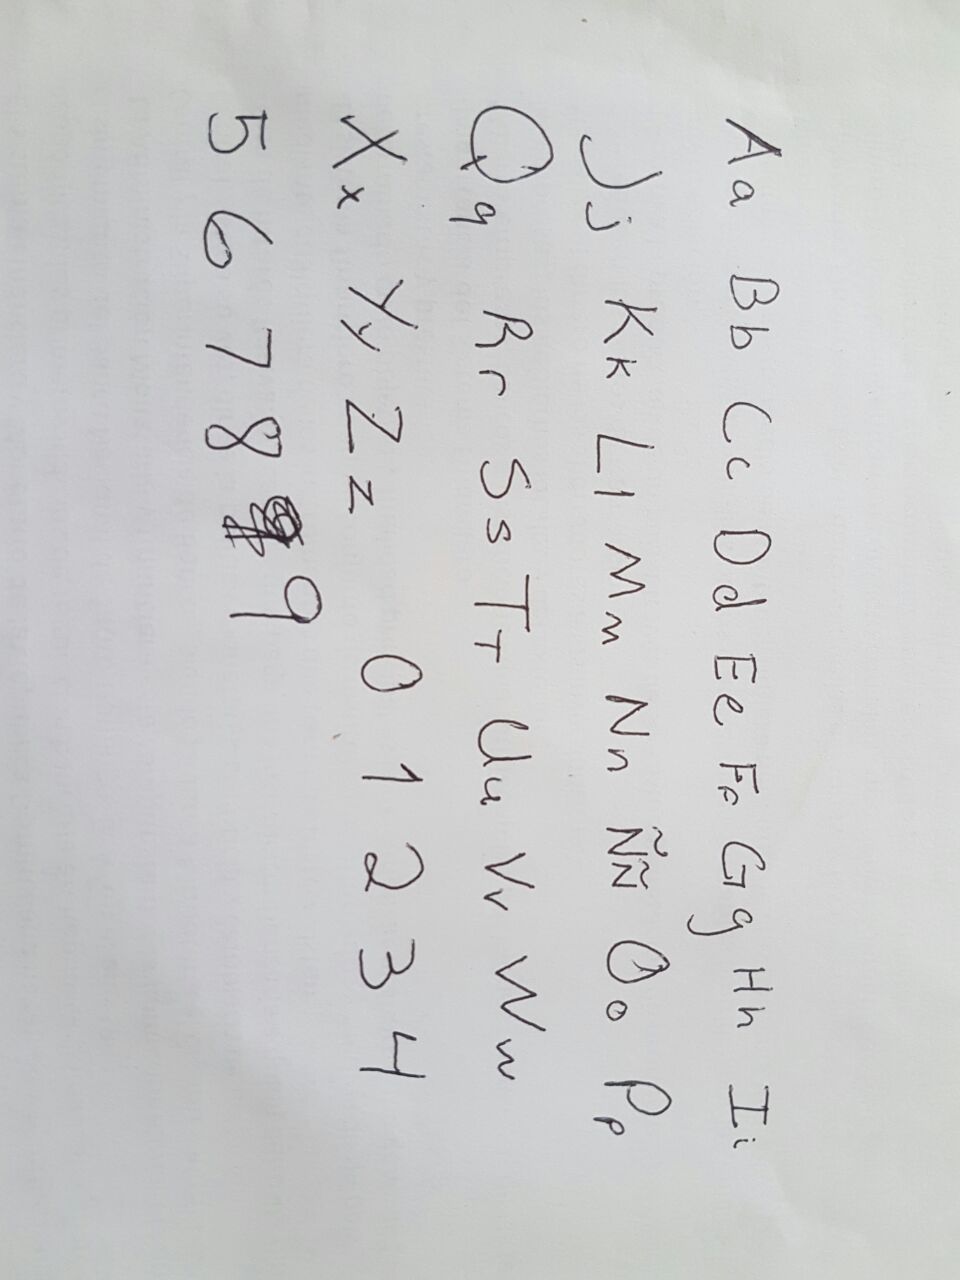 Aa Bb Cc Dd Ee Ff Gg Hh Ii
Jj Kk Ll Mm Nn Ññ Oo Pp
Qq Rr Ss Tt Uu Vv Ww
Xx Yy Zz 0 1 2 3 4
5 6 7 8 9